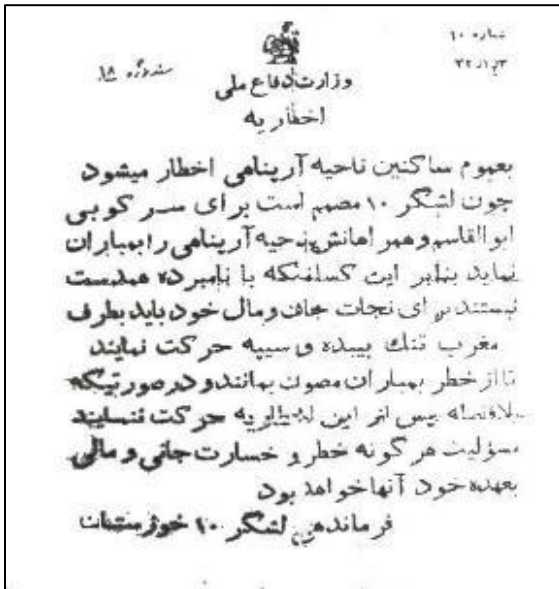 شماره ۱۰
سندوژه ۱۸
وزارت دفاع ملی
اخطاریه
بعموم ساکنین ناحیه آرپناهی اخطار میشود
چون لشگر ۱۰ مصمم است برای سرکوبی
ابوالقاسم و همراهانش ناحیه آرپناهی را بمباران
نماید بنابر این کسانیکه با نامبرده همدست
نیستند برای نجات جان و مال خود باید بطرف
مغرب تنك بیبده و سیپه حرکت نمایند
تا از خطر بمباران مصون بمانند و در صورتیکه
بلافاصله پس از این اخطاریه حرکت ننمایند
مسؤلیت هر گونه خطر و خسارت جانی و مالی
بعهده خود آنها خواهد بود
فرماندهی لشگر ۱۰ خوزستان